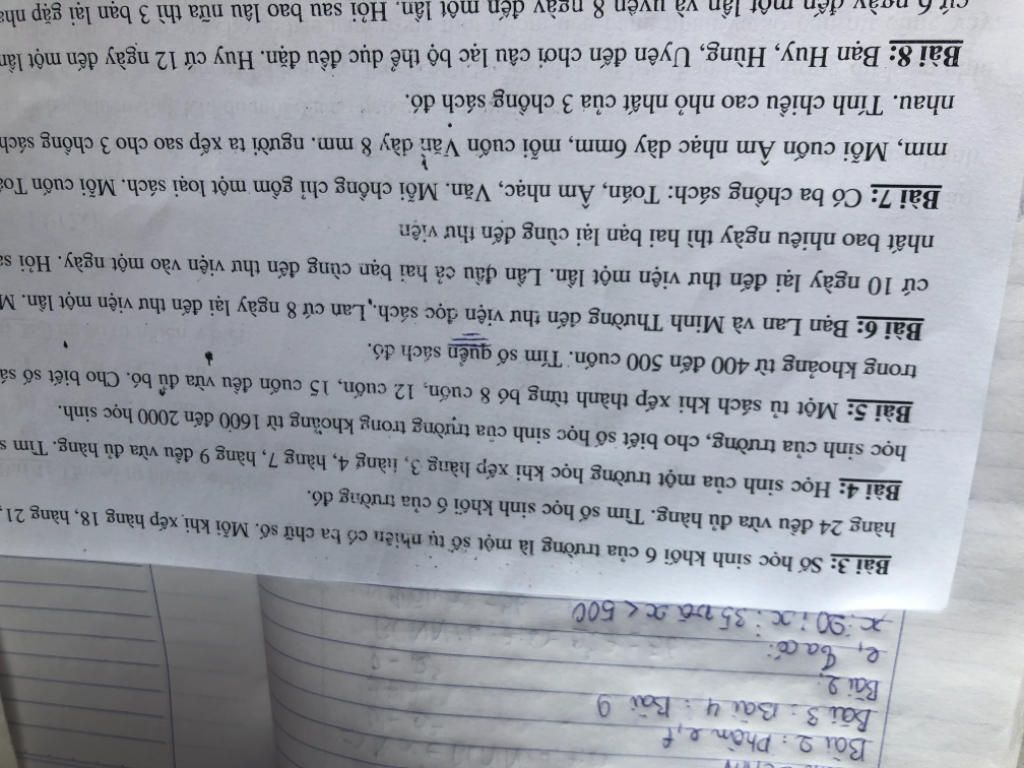 Bài 2: Phần e, f
Bài 3: Bài 4: Bài 9
Bài 2.
e, Ta có:
x ⋮ 20; x ⋮ 35 và x < 500
Bài 3: Số học sinh khối 6 của trường là một số tự nhiên có ba chữ số. Mỗi khi xếp hàng 18, hàng 21,
hàng 24 đều vừa đủ hàng. Tìm số học sinh khối 6 của trường đó.
Bài 4: Học sinh của một trường học khi xếp hàng 3, hàng 4, hàng 7, hàng 9 đều vừa đủ hàng. Tìm
học sinh của trường, cho biết số học sinh của trường trong khoảng từ 1600 đến 2000 học sinh.
Bài 5: Một tủ sách khi xếp thành từng bó 8 cuốn, 12 cuốn, 15 cuốn đều vừa đủ bó. Cho biết số
trong khoảng từ 400 đến 500 cuốn. Tím số quển sách đó.
Bài 6: Bạn Lan và Minh Thường đến thư viện đọc sách. Lan cứ 8 ngày lại đến thư viện một lần.
cứ 10 ngày lại đến thư viện một lần. Lần đầu cả hai bạn cùng đến thư viện vào một ngày. Hỏi
nhất bao nhiêu ngày thì hai bạn lại cùng đến thư viện
Bài 7: Có ba chồng sách: Toán, Âm nhạc, Văn. Mỗi chồng chỉ gồm một loại sách. Mỗi cuốn
mm, Mỗi cuốn Âm nhạc dày 6mm, mỗi cuốn Văn dày 8 mm. người ta xếp sao cho 3 chồng sách
nhau. Tính chiều cao nhỏ nhất của 3 chồng sách đó.
Bài 8: Bạn Huy, Hùng, Uyên đến chơi câu lạc bộ thể dục đều đặn. Huy cứ 12 ngày đến một
cứ 6 ngày đến một lần và uyên 8 ngày đến một lần. Hỏi sau bao lâu nữa thì 3 bạn lại gặp